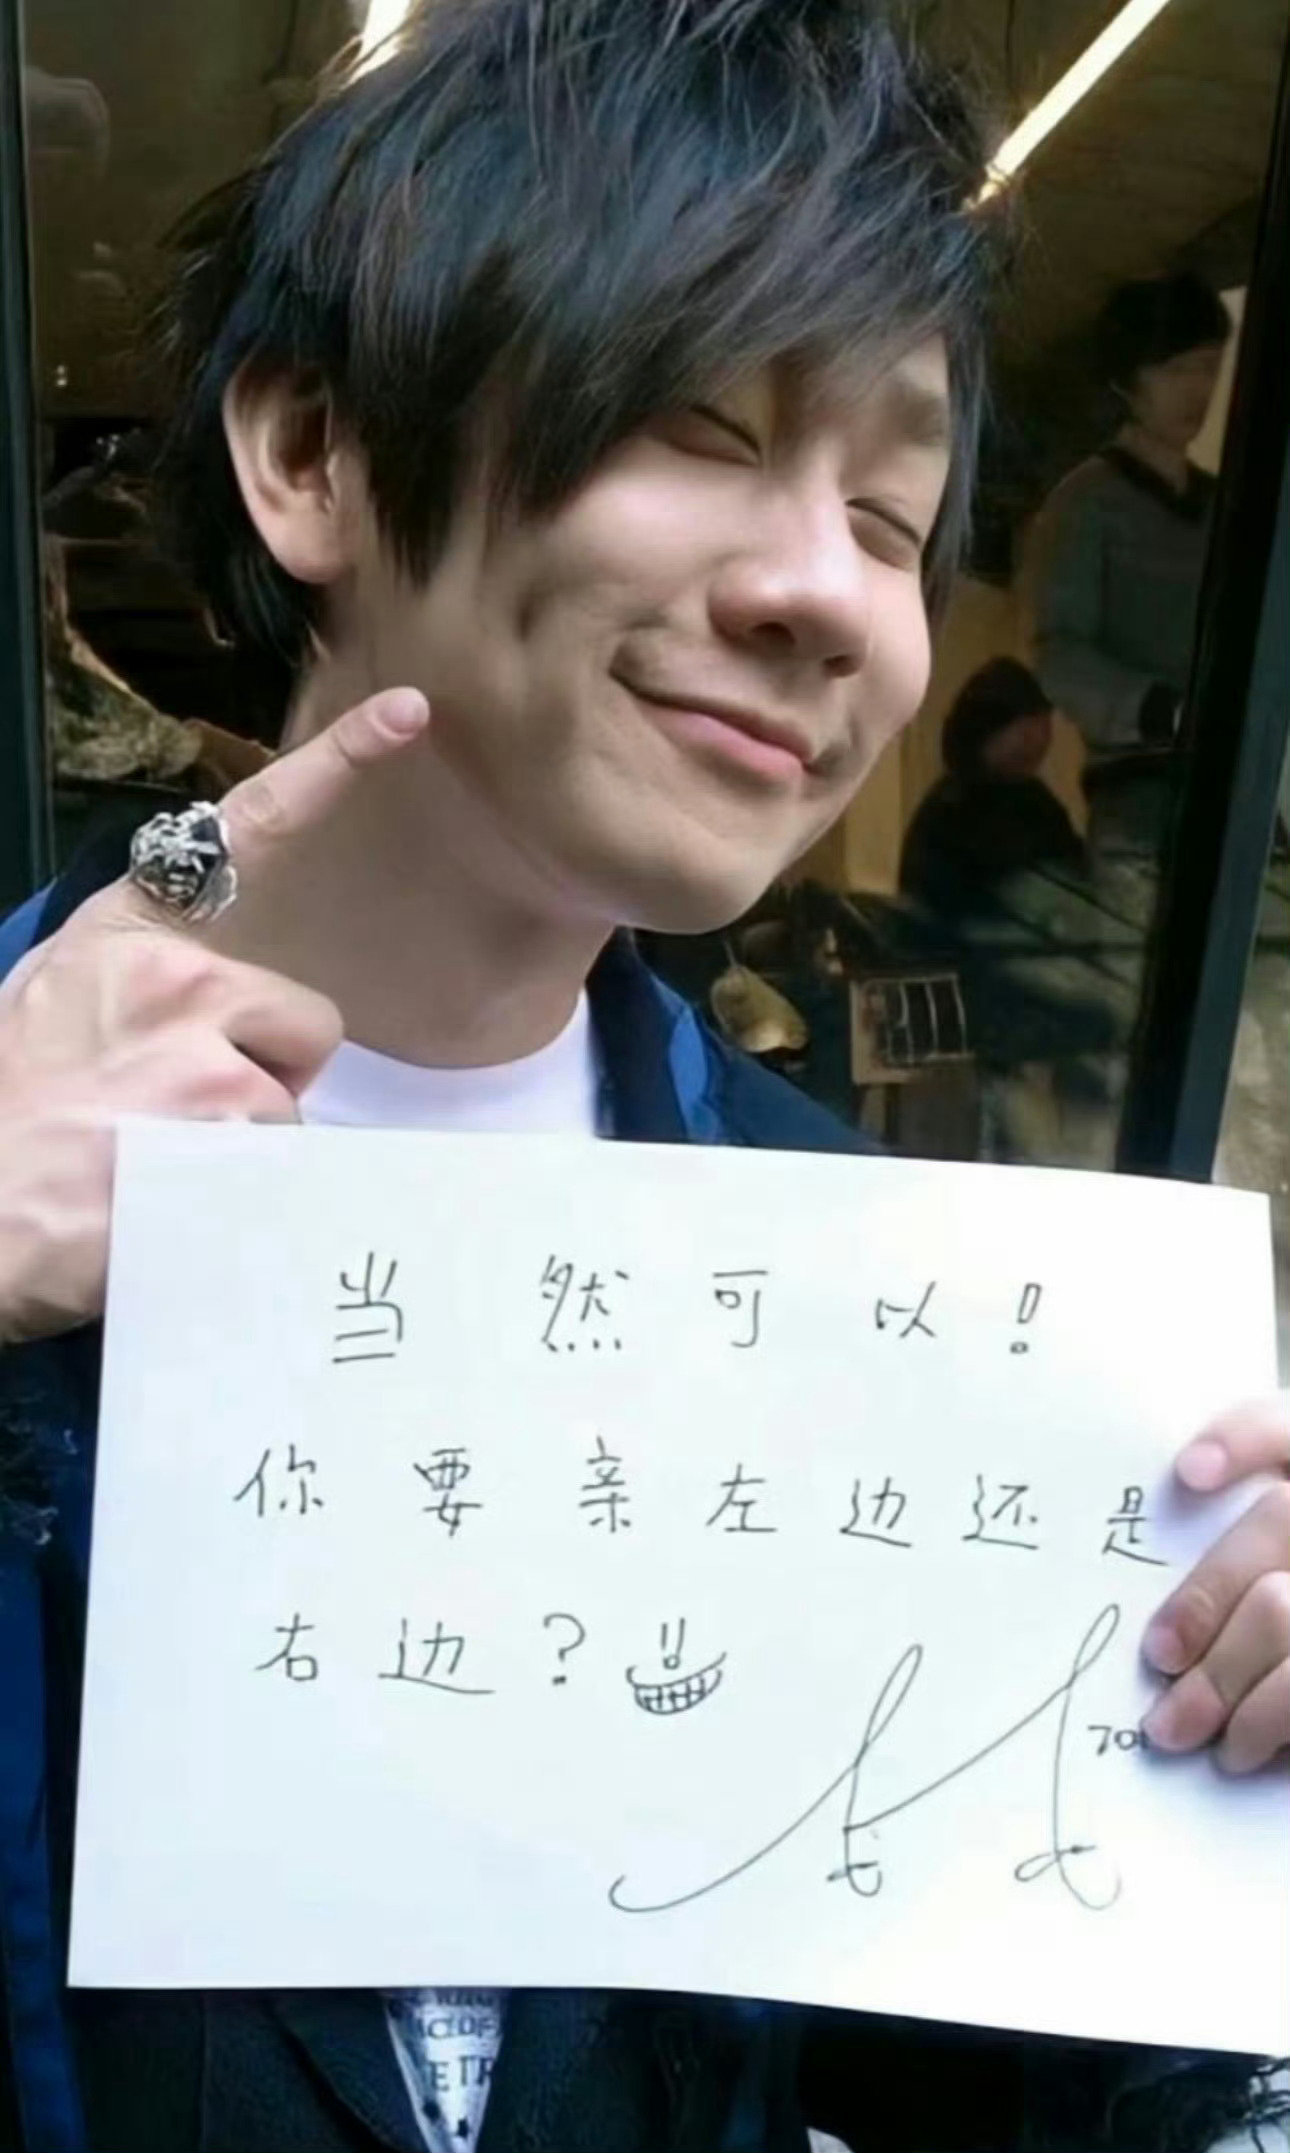 当然可以！
你要亲左边还是
右边？